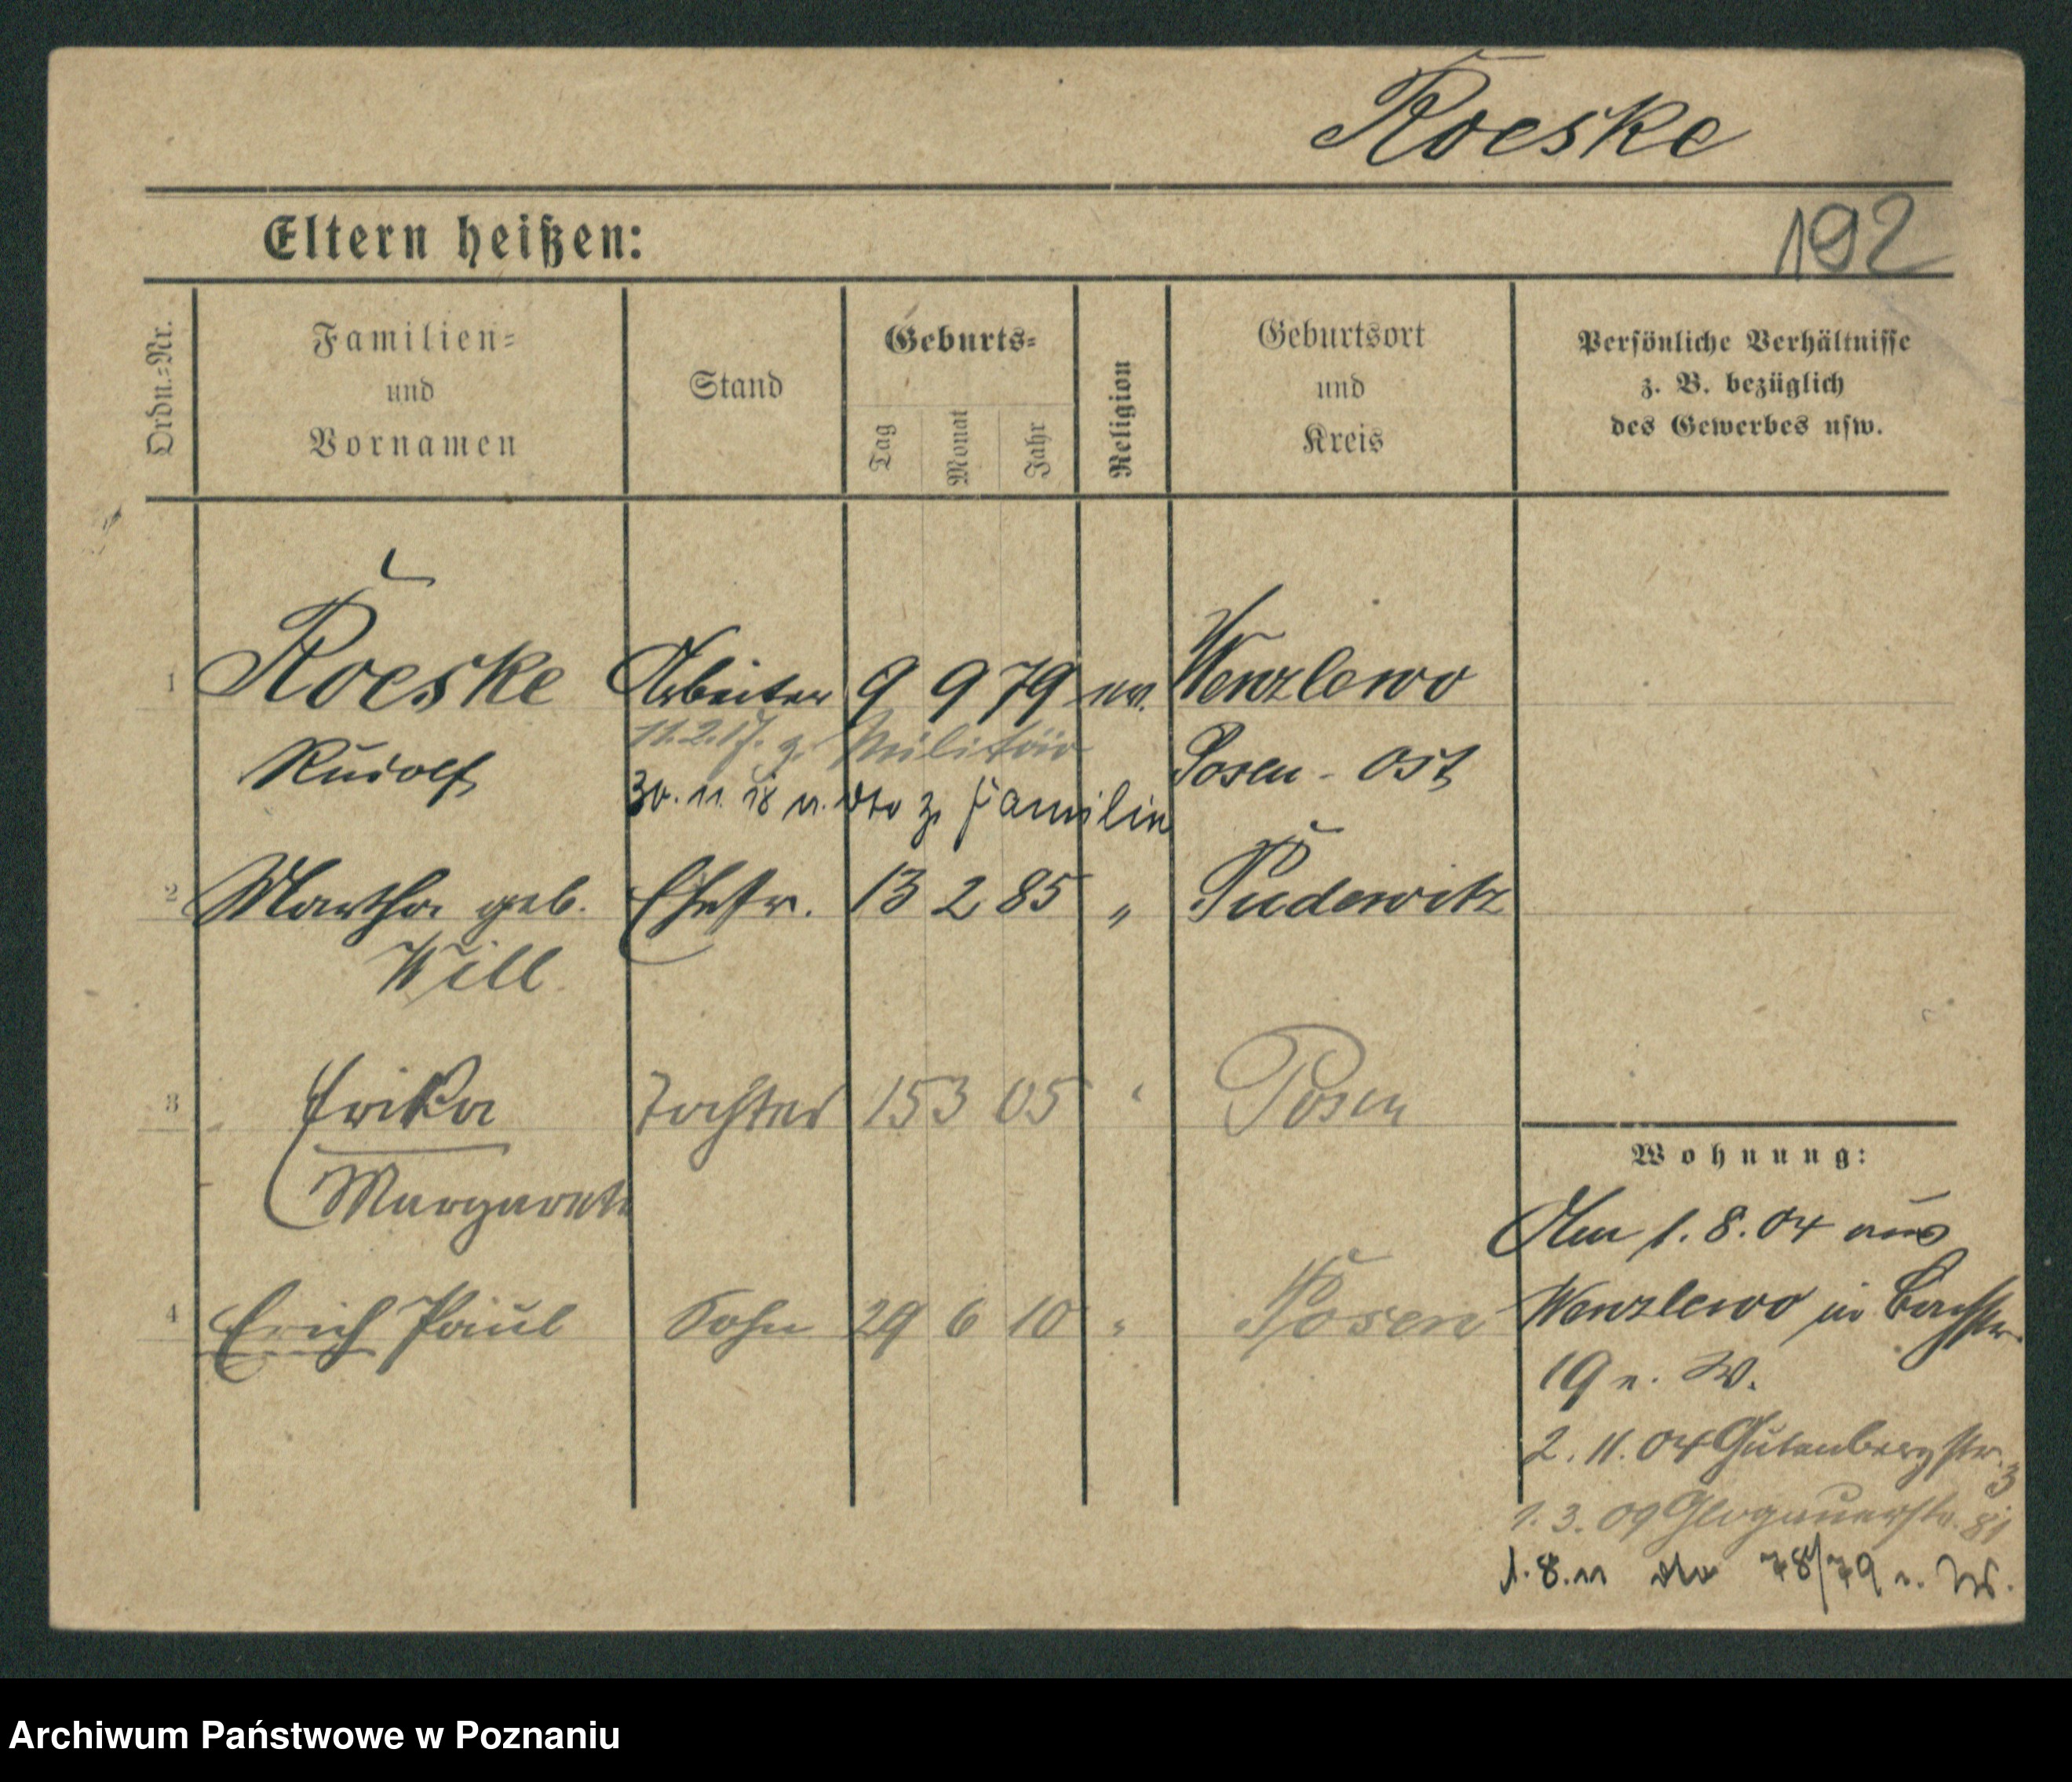 Roeske
Eltern heißen:
192
Ordn.-Nr.
Familien-
und
Vornamen
Stand
Geburts-
Tag
Monat
Jahr
Religion
Geburtsort
und
Kreis
Persönliche Verhältnisse
z. B. bezüglich
des Gewerbes usw.
1 Roeske Arbeiter 9 9 79 ev. Wenzlewo
11.2.17. z. Militär
Rudolf Posen-Ost
30. 11. 18 v. dto z. Familie
2 Martha geb. Ehefr. 13 2 85 " Pudewitz
Will
3 Erika Tochter 15 3 05 " Posen
Margarete
4 Erich Paul Sohn 29 6 10 " Posen
Wohnung:
Am 1. 8. 04 aus
Wenzlewo in Bachstr.
19 n. W.
2. 11. 04 Gutenbergstr. 3
1. 3. 09 Glogauerstr. 81
1. 8. 11 dto 78/79 n. W.
Archiwum Państwowe w Poznaniu